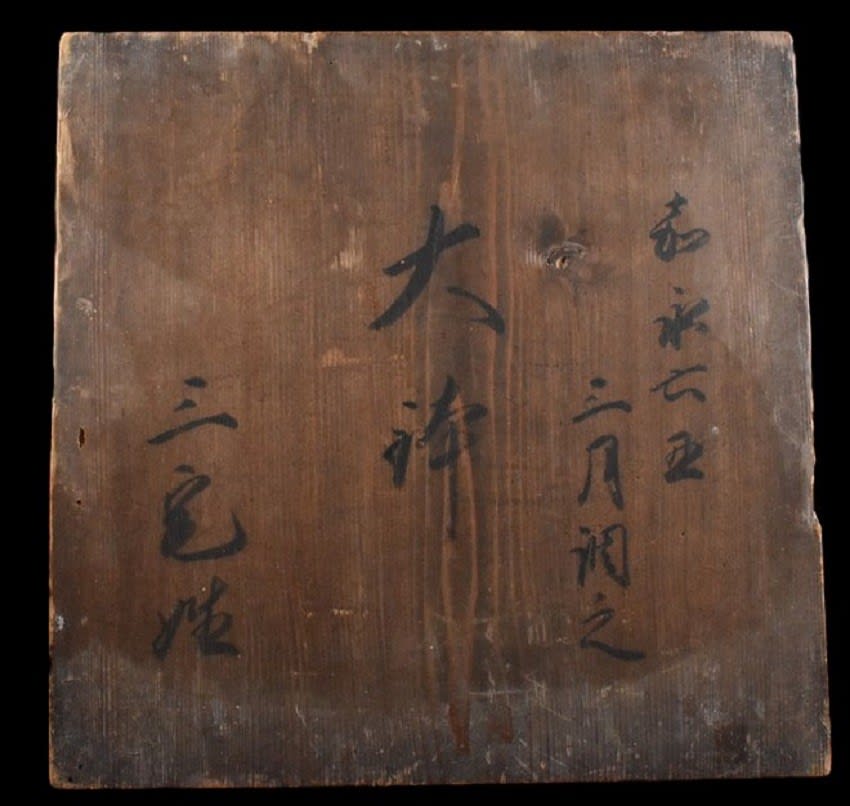 嘉永六丑
三月調之
大鉢
三宅姓